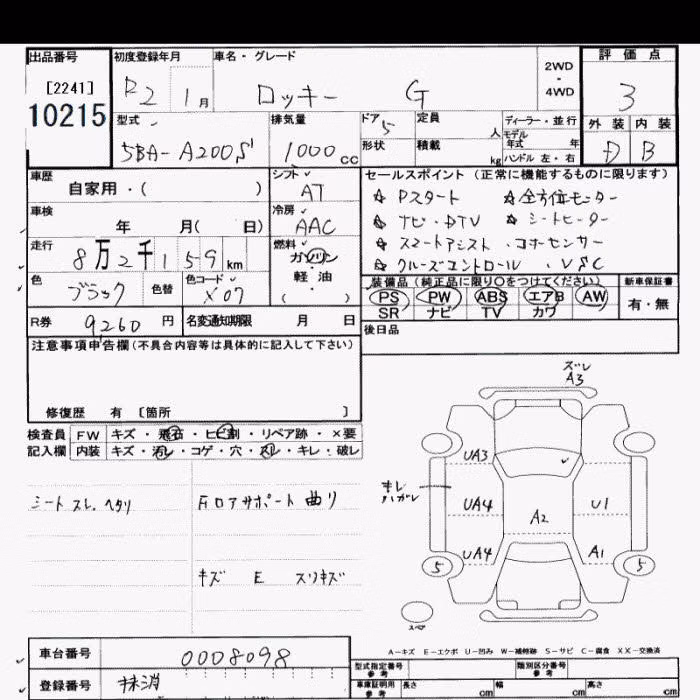 出品番号 初度登録年月 車名・グレード 評価点
[2241] R2 1月 ロッキー G 2WD・4WD 3
10215
型式 排気量 ドア 定員 人 ディーラー・並行 外装 内装
5BA-A200S 1000cc 5 形状 積載 kg モデル年式 年 ハンドル 左・右 D B
車歴 シフト セールスポイント (正常に機能するものに限ります)
自家用・( ) AT ☆ Pスタート ☆ 全方位モニター
車検 冷房 ☆ ナビ・DTV ☆ シートヒーター
年 月( 日) AAC ☆ スマートアシスト ・コーナーセンサー
走行 燃料 ☆ クルーズコントロール ・VSC
8万2千159km ガソリン・軽・油( )
色 色替 色コード 装備品(純正品に限り○をつけてください) 新車保証書
ブラック X07 PS PW ABS エアB AW 有・無
SR ナビ TV カワ
R券 9260円 名変通知期限 月 日 後日品
注意事項申告欄(不具合内容等は具体的に記入して下さい)
修復歴 有 [箇所 ]
検査員 FW キズ・飛石・ヒビ割・リペア跡・×要
記入欄 内装 キズ・汚レ・コゲ・穴・スレ・キレ・破レ
シート スレ、ヘタリ
FロアサポートF 曲り
キズ E スリキズ
ズレ
A3
UA3
キレ
ハガレ
UA4 A2 U1
UA4 A1
5 5
スペア
A-キズ E-エクボ U-凹み W-補修跡 S-サビ C-腐食 XX-交換済
車台番号 0008098
型式指定番号 参考 類別区分番号 参考
登録番号 抹消
車庫証明用 参考 長さ cm 幅 cm 高さ cm